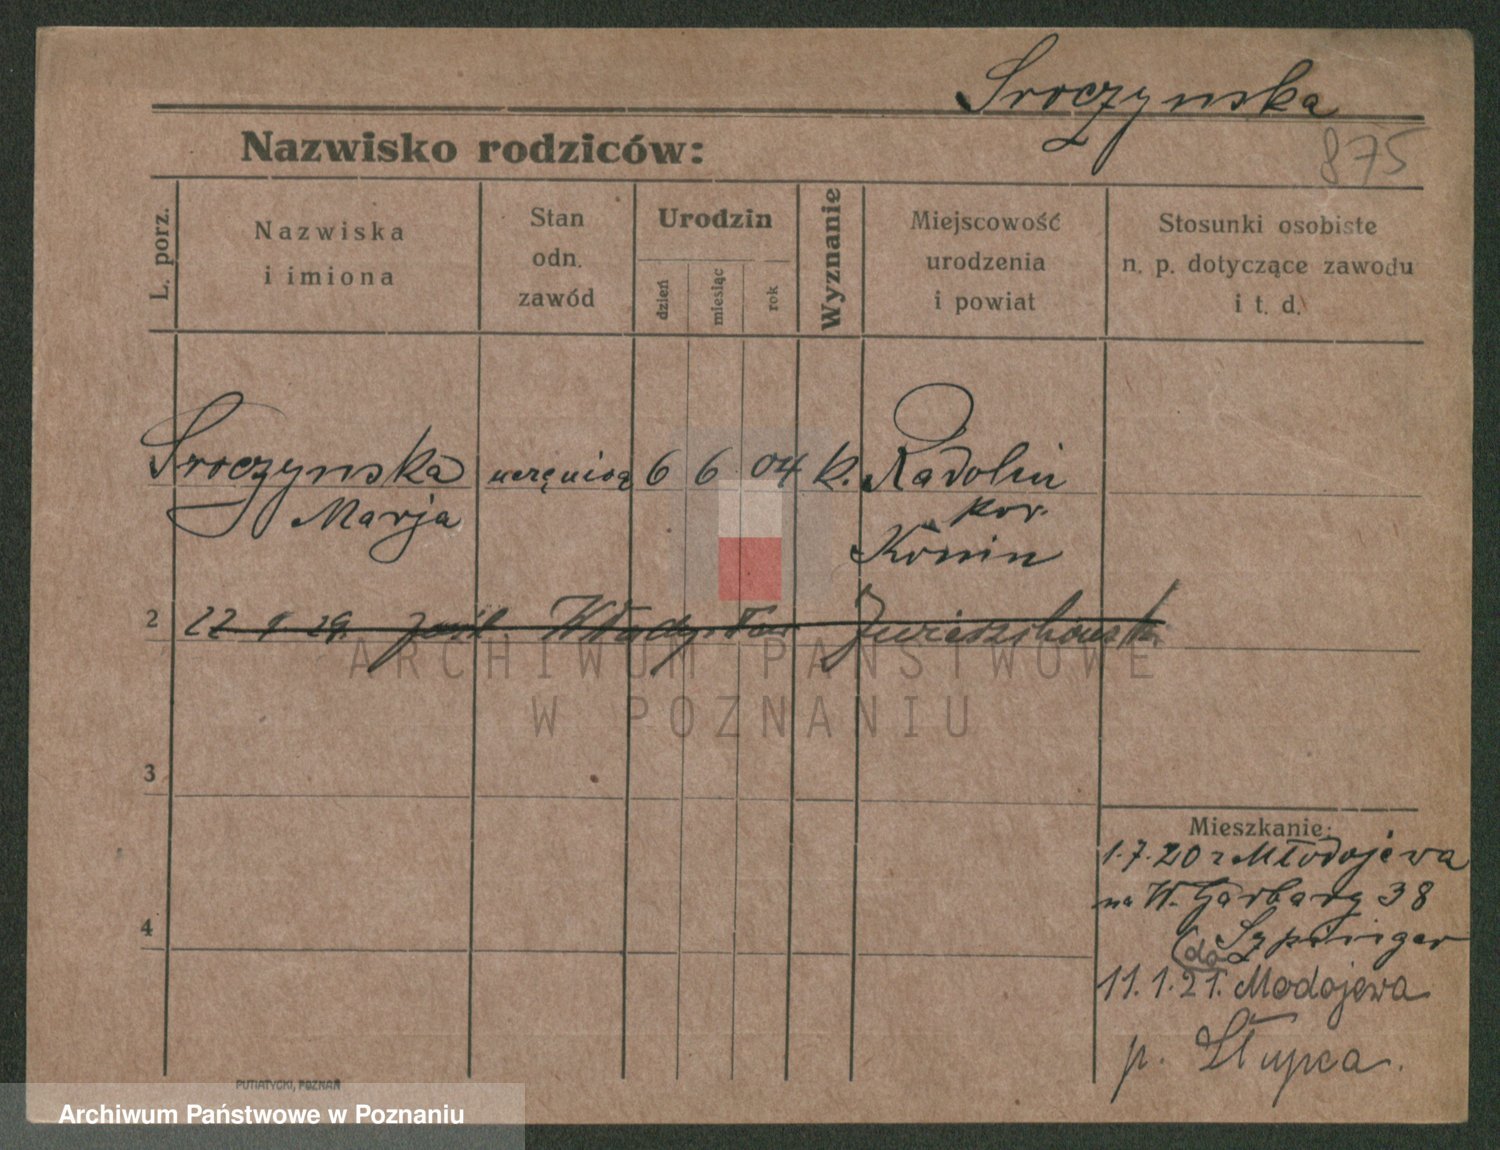 Sroczynska
875
Nazwisko rodziców:
L. porz.
Nazwiska
i imiona
Stan
odn.
zawód
Urodzin
dzień
miesiąc
rok
Wyznanie
Miejscowość
urodzenia
i powiat
Stosunki osobiste
n. p. dotyczące zawodu
i t. d.
Sroczynska 6 6 04 k. Radolin
Marja
Konin
2 22 29. Władysław
3
4
Mieszkanie:
1.7.20 z Młodojewa
na W. Garbary 38
Szpringer
do
11.1.21. Modojewa
p. Słupca.
PUTIATYCKI, POZNAŃ
ARCHIWUM PAŃSTWOWE
W POZNANIU
Archiwum Państwowe w Poznaniu